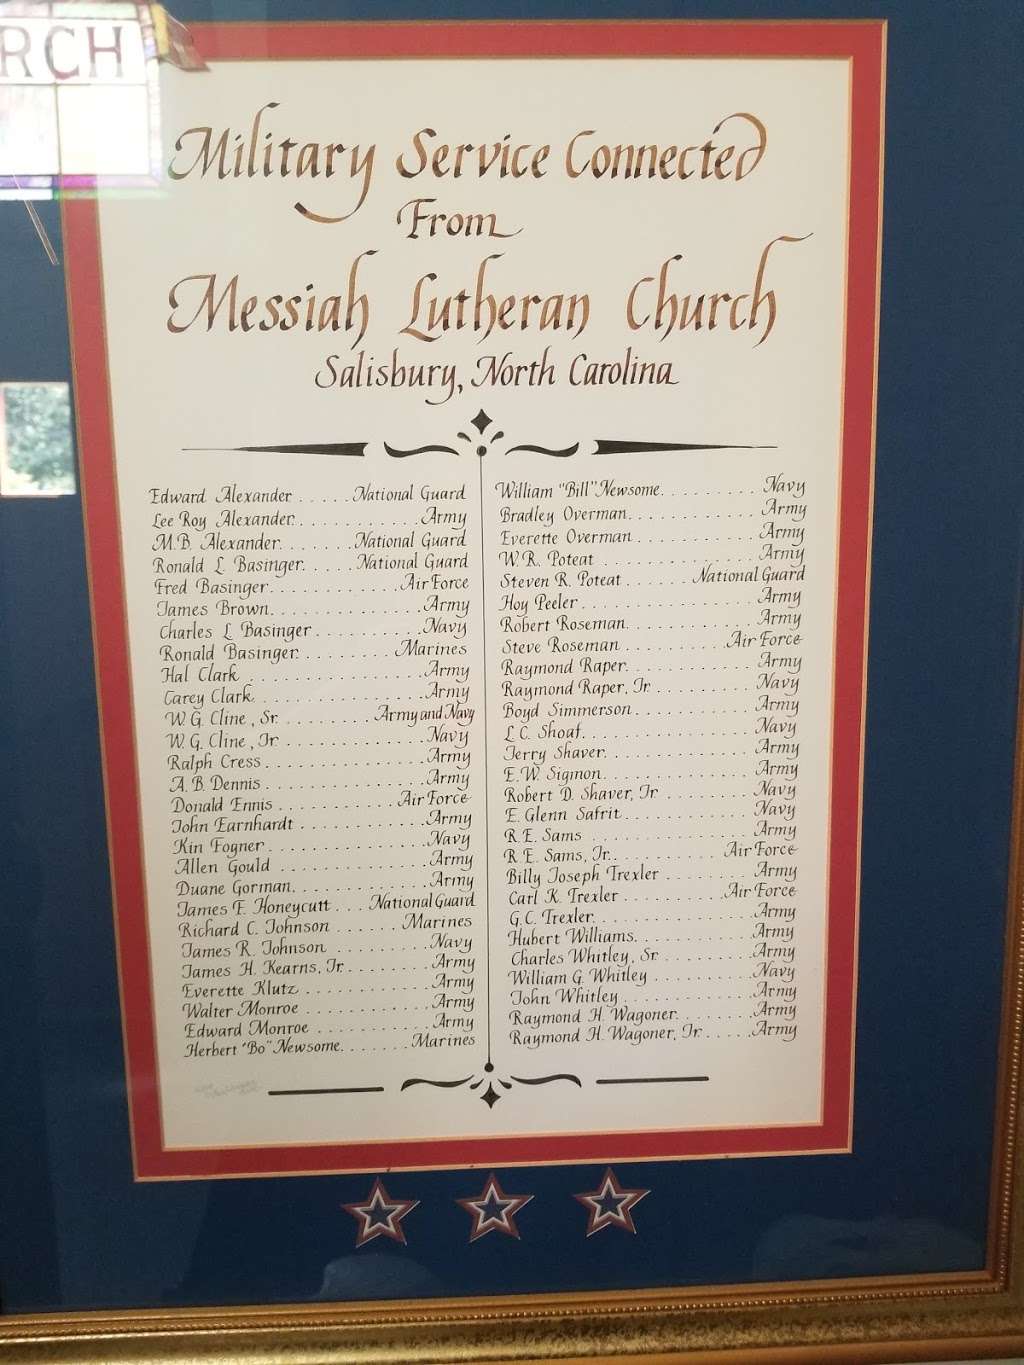 RCH
Military Service Connected
From
Messiah Lutheran Church
Salisbury, North Carolina
Edward Alexander . . . . . National Guard
Lee Roy Alexander. . . . . . . . . . . . Army
M.B. Alexander. . . . . . . National Guard
Ronald L Basinger. . . . . National Guard
Fred Basinger. . . . . . . . . . . . Air Force
James Brown. . . . . . . . . . . . . . Army
Charles L Basinger . . . . . . . . . Navy
Ronald Basinger. . . . . . . . . Marines
Hal Clark . . . . . . . . . . . . . . . Army
Carey Clark. . . . . . . . . . . . . . . Army
W. G. Cline, Sr. . . . . . . . . Army and Navy
W. G. Cline, Jr. . . . . . . . . . . . . Navy
Ralph Cress . . . . . . . . . . . . . . Army
A. B. Dennis . . . . . . . . . . . . . . Army
Donald Ennis . . . . . . . . . . Air Force
John Earnhardt . . . . . . . . . . . Army
Kin Fogner . . . . . . . . . . . . . . Navy
Allen Gould . . . . . . . . . . . . . Army
Duane Gorman. . . . . . . . . . . . Army
James F. Honeycutt . . . National Guard
Richard C. Johnson . . . . . . Marines
James R. Johnson . . . . . . . . . Navy
James H. Kearns, Jr. . . . . . . . . Army
Everette Klutz . . . . . . . . . . . . Army
Walter Monroe . . . . . . . . . . . . Army
Edward Monroe . . . . . . . . . . . Army
Herbert "Bo" Newsome. . . . . . . Marines
William "Bill" Newsome. . . . . . . . . Navy
Bradley Overman. . . . . . . . . . . . Army
Everette Overman . . . . . . . . . . . Army
W. R. Poteat . . . . . . . . . . . . . . Army
Steven R. Poteat . . . . . . National Guard
Hoy Peeler . . . . . . . . . . . . . . . . Army
Robert Roseman. . . . . . . . . . . . Army
Steve Roseman . . . . . . . . . . Air Force
Raymond Raper. . . . . . . . . . . . . Army
Raymond Raper, Jr. . . . . . . . . . . Navy
Boyd Simmerson. . . . . . . . . . . . Army
L.C. Shoaf. . . . . . . . . . . . . . . . Navy
Jerry Shaver. . . . . . . . . . . . . . Army
E. W. Sigmon. . . . . . . . . . . . . . Army
Robert D. Shaver, Jr . . . . . . . . Navy
E. Glenn Safrit. . . . . . . . . . . . . Navy
R. E. Sams . . . . . . . . . . . . . . . Army
R. E. Sams, Jr. . . . . . . . . . . Air Force
Billy Joseph Trexler . . . . . . . . Army
Carl K. Trexler . . . . . . . . . . Air Force
G. C. Trexler. . . . . . . . . . . . . . . Army
Hubert Williams. . . . . . . . . . . . Army
Charles Whitley, Sr. . . . . . . . . . Army
William G. Whitley . . . . . . . . . Navy
John Whitley . . . . . . . . . . . . . Army
Raymond H. Wagoner. . . . . . . . Army
Raymond H. Wagoner, Jr. . . . . . Army